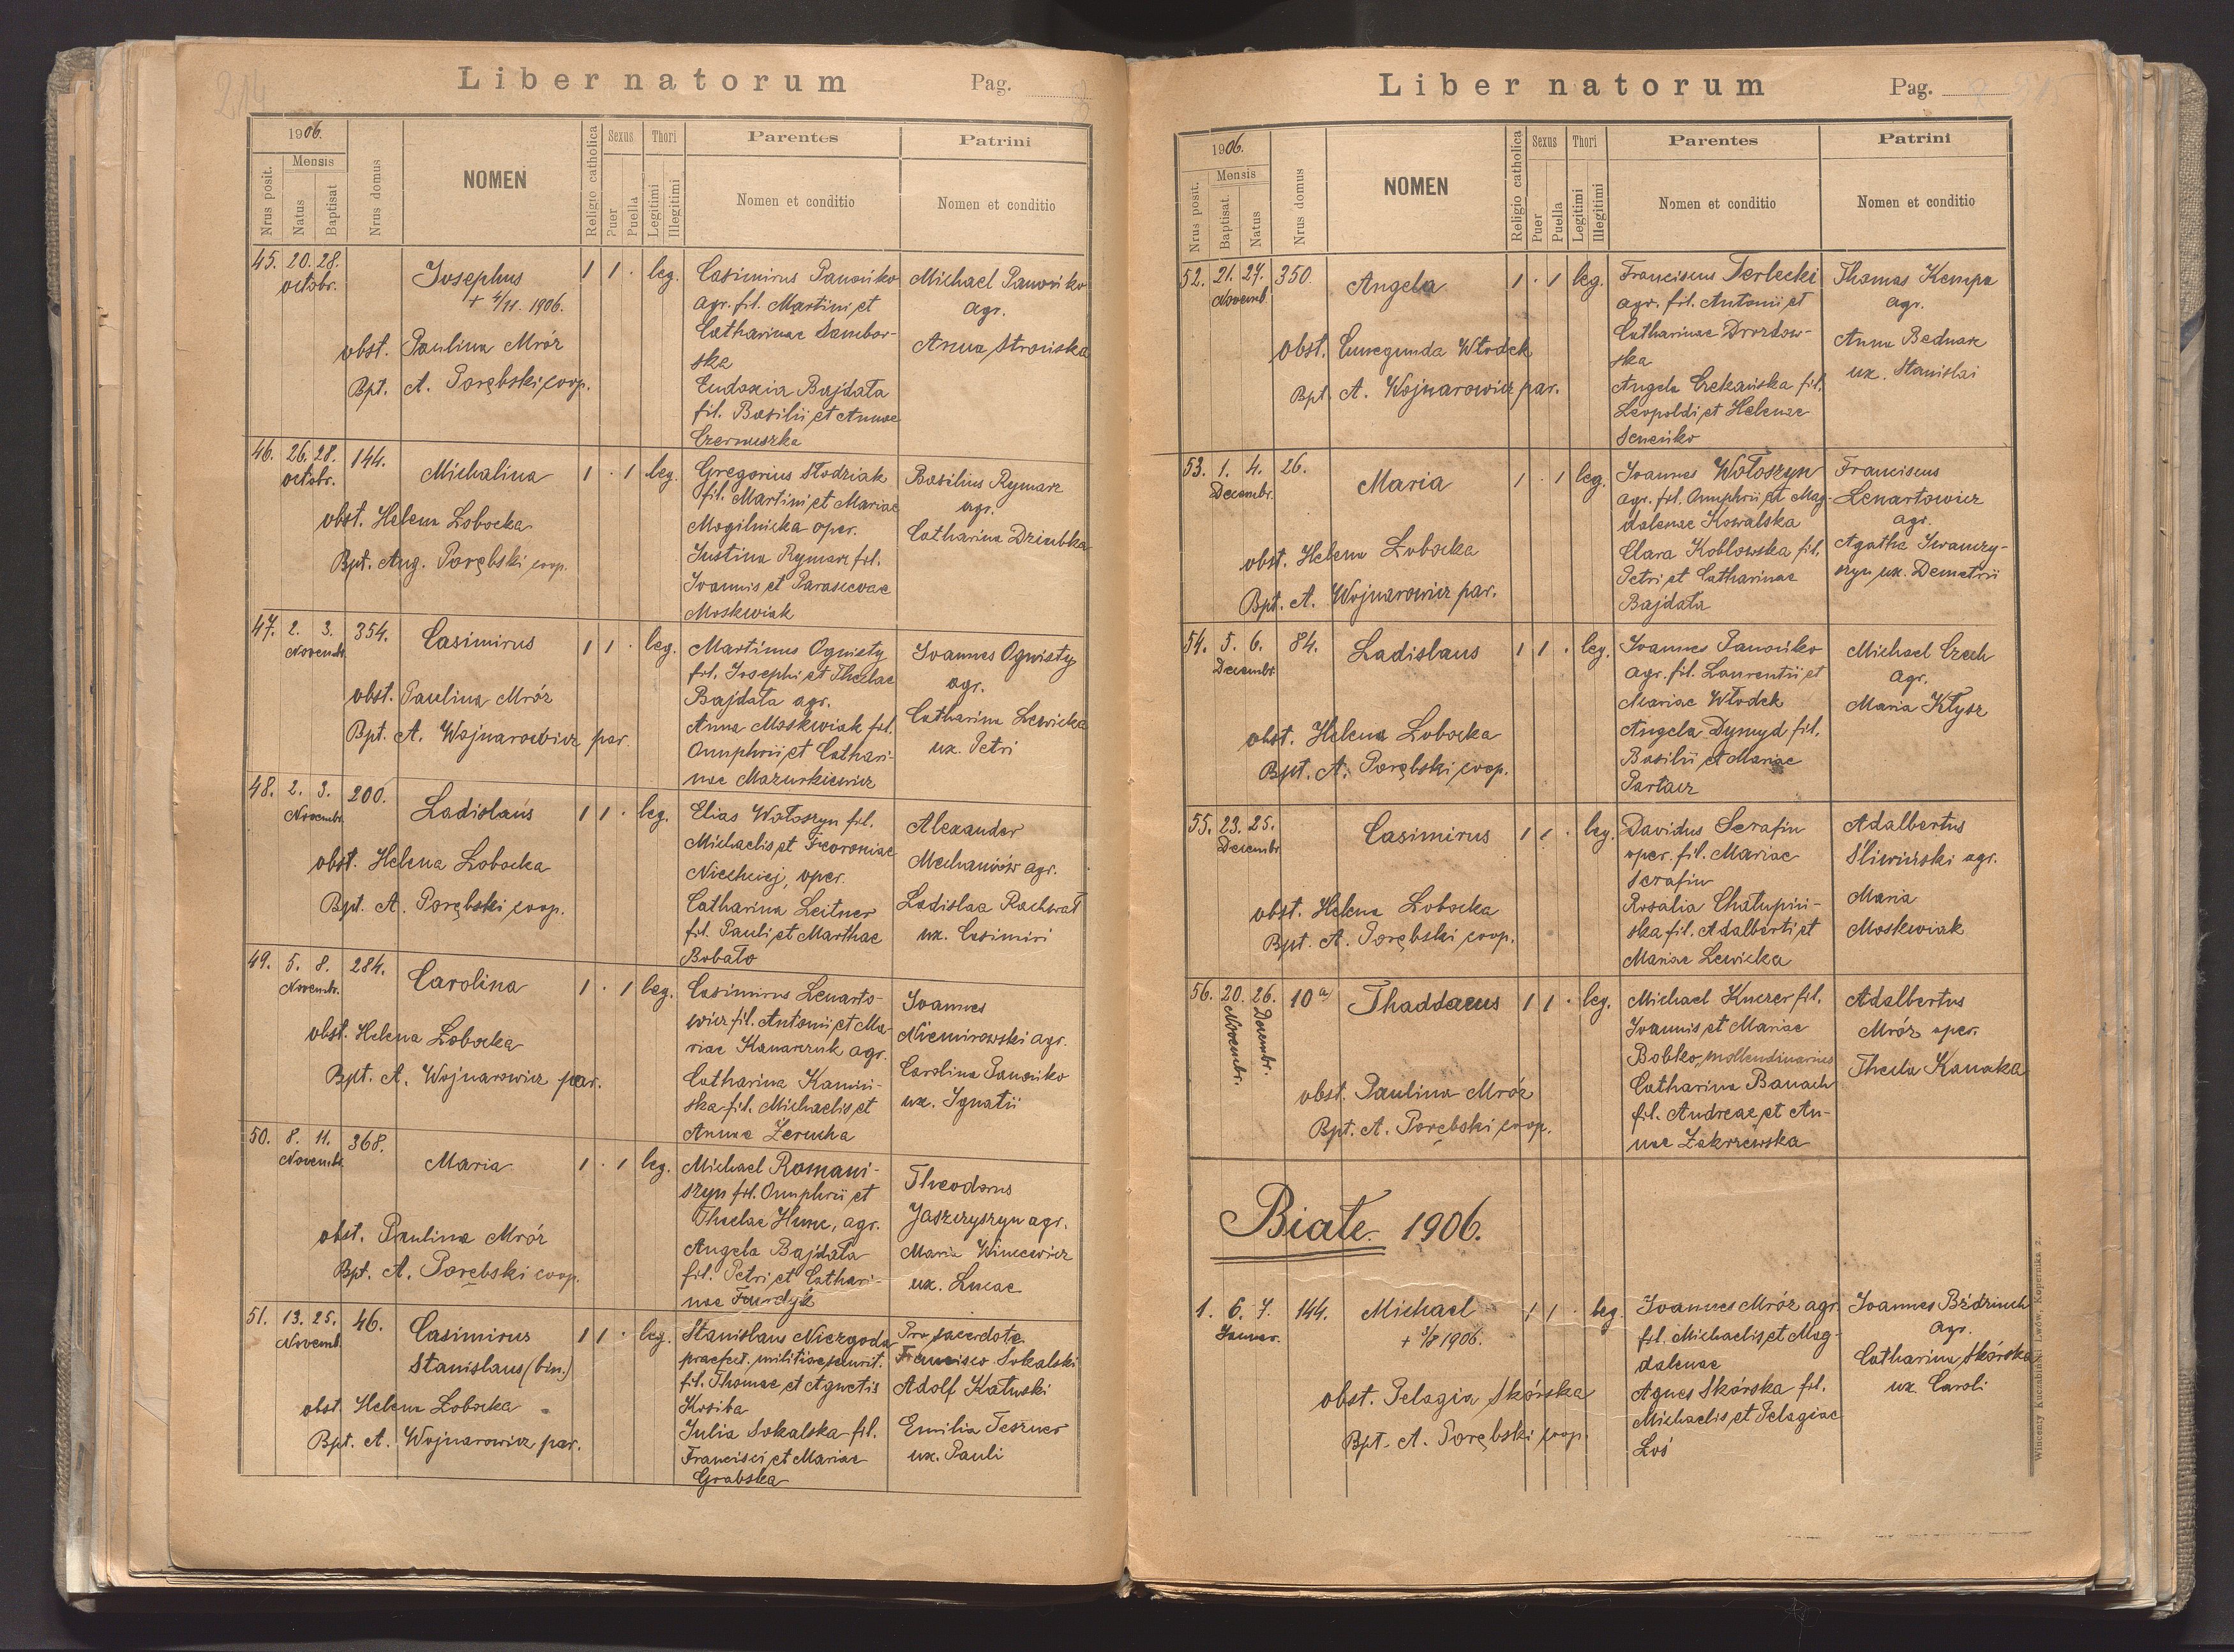 214
Liber natorum
Pag.
1906.
Nrus posit.
Mensis
Natus
Baptisat
Nrus domus
NOMEN
Religio catholica
Sexus
Puer
Puella
Thori
Legitimi
Illegitimi
Parentes
Nomen et conditio
Patrini
Nomen et conditio
45. 20. 28. octobr.
Josephus
+ 4/11. 1906.
obst. Paulina Mróz
Bpt. A. Porębski, coop.
1 1 . leg.
Casimirus Panońko
agr. fil. Martini et
Catharinae Sambor-
ska
Eudoxia Bajdała
fil. Basilii et Annae
Czernuszka
Michael Panońko
agr.
Anna Strońska
46. 26. 28. octobr. 144.
Michalina
obst. Helena Łobocka
Bpt. Aug. Porębski coop.
1 . 1 leg.
Gregorius Słodziak
fil. Martini et Mariae
Mogilnicka oper.
Justina Rymarz fil.
Joannis et Parascevae
Moskwiak
Basilius Rymarz
agr.
Catharina Dziubka
47. 2. 3. Novembr. 354.
Casimirus
obst. Paulina Mróz
Bpt. A. Wojnarowicz par.
1 1 . leg.
Martinus Ognisty
fil. Josephi et Theclae
Bajdała agr.
Anna Moskwiak fil.
Onuphrii et Cathari-
nae Mazurkiewicz
Joannes Ognisty
agr.
Catharina Lewicka
ux. Petri
48. 2. 3. Novembr. 200.
Ladislaus
obst. Helena Łobocka
Bpt. A. Porębski coop.
1 1 . leg.
Elias Wołoszyn fil.
Michaelis et Fevroniae
Niechciej, oper.
Catharina Leitner
fil. Pauli et Marthae
Bobało
Alexander
Mechaniów agr.
Ladislaa Rachwał
ux. Casimiri
49. 5. 8. Novembr. 284.
Carolina
obst. Helena Łobocka
Bpt. A. Wojnarowicz par.
1 . 1 leg.
Casimirus Lenarto-
wicz fil. Antonii et Ma-
riae Kanarczuk agr.
Catharina Kamiń-
ska fil. Michaelis et
Annae Zerucha
Joannes
Niemirowski agr.
Carolina Panońko
ux. Ignatii
50. 8. 11. Novembr. 368.
Maria
obst. Paulina Mróz
Bpt. A. Porębski coop.
1 . 1 leg.
Michael Romani-
szyn fil. Onuphrii et
Theclae Hunc, agr.
Angela Bajdała
fil. Petri et Cathari-
nae Furdyk
Theodorus
Jaszczyszyn agr.
Maria Wincewicz
ux. Lucae
51. 13. 25. Novemb. 46.
Casimirus
Stanislaus (bin.)
obst. Helena Łobocka
Bpt. A. Wojnarowicz par.
1 1 . leg.
Stanislaus Niezgoda
praefect. militiae securit.
fil. Thomae et Agnetis
Kosiba
Julia Sokalska fil.
Francisci et Mariae
Grabska
Pro sacerdote
Francisco Sokalski
Adolf Kałuski
Emilia Teszner
ux. Pauli
Liber natorum
Pag.
1906.
Nrus posit.
Mensis
Baptisat.
Natus
Nrus domus
NOMEN
Religio catholica
Sexus
Puer
Puella
Thori
Legitimi
Illegitimi
Parentes
Nomen et conditio
Patrini
Nomen et conditio
52. 21. 27. Novemb. 350.
Angela
obst. Cunegunda Włodek
Bpt. A. Wojnarowicz par.
1 . 1 leg.
Franciscus Terlecki
agr. fil. Antonii et
Catharinae Drozdow-
ska
Angela Czekańska fil.
Leopoldi et Helenae
Seneńko
Thomas Kempa
agr.
Anna Bednarz
ux. Stanislai
53. 1. 4. Decembr. 26.
Maria
obst. Helena Łobocka
Bpt. A. Wojnarowicz par.
1 . 1 leg.
Joannes Wołoszyn
agr. fil. Onuphrii, et Mag-
dalenae Kowalska
Clara Kobłowska fil.
Petri et Catharinae
Bajdała
Franciscus
Lenartowicz
agr.
Agatha Iwanczy-
szyn ux. Demetrii
54. 5. 6. Decembr. 84.
Ladislaus
obst. Helena Łobocka
Bpt. A. Porębski coop.
1 1 . leg.
Joannes Panońko
agr. fil. Laurentii et
Mariae Włodek
Angela Dymyd fil.
Basilii et Mariae
Partacz
Michael Czech
agr.
Maria Kłysz
55. 23. 25. Decembr.
Casimirus
obst. Helena Łobocka
Bpt. A. Porębski coop.
1 1 . leg.
Davidus Serafin
oper. fil. Mariae
Serafin
Rosalia Chałupiń-
ska fil. Adalberti et
Mariae Lewicka
Adalbertus
Śliwiński agr.
Maria
Moskwiak
56. 20. Novembr. 26. Decembr. 10a
Thaddaeus
obst. Paulina Mróz
Bpt. A. Porębski coop.
1 1 . leg.
Michael Knerer fil.
Joannis et Mariae
Bobko, mollendinarius
Catharina Banach
fil. Andreae et An-
nae Zakrzewska
Adalbertus
Mróz oper.
Thecla Kanaka
Białe 1906.
1. 6. 7. Januar. 144.
Michael
+ 3/8 1906.
obst. Pelagia Skórska
Bpt. A. Porębski coop.
1 1 . leg.
Joannes Mróz agr.
fil. Michaelis et Mag-
dalenae
Agnes Skórska fil.
Michaelis et Pelagiae
Łoś
Joannes Bździuch
agr.
Catharina Skórska
ux. Caroli
Wincenty Kuczabiński Lwów, Kopernika 2.